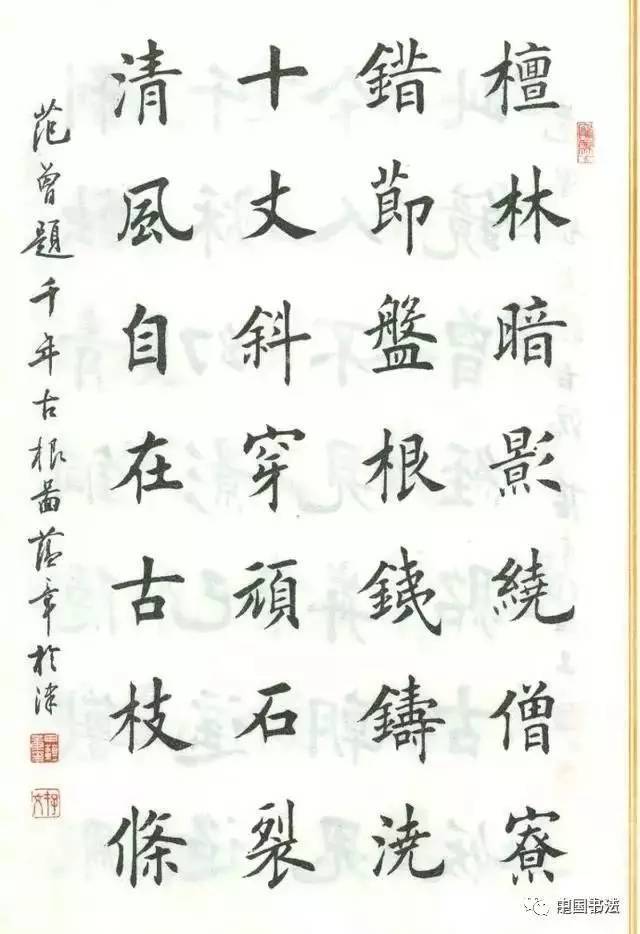 檀林暗影繞僧寮
錯節盤根銕鑄澆
十丈斜穿頑石裂
清風自在古枝條
范曾題千年古根圖蕴章於津
中国书法